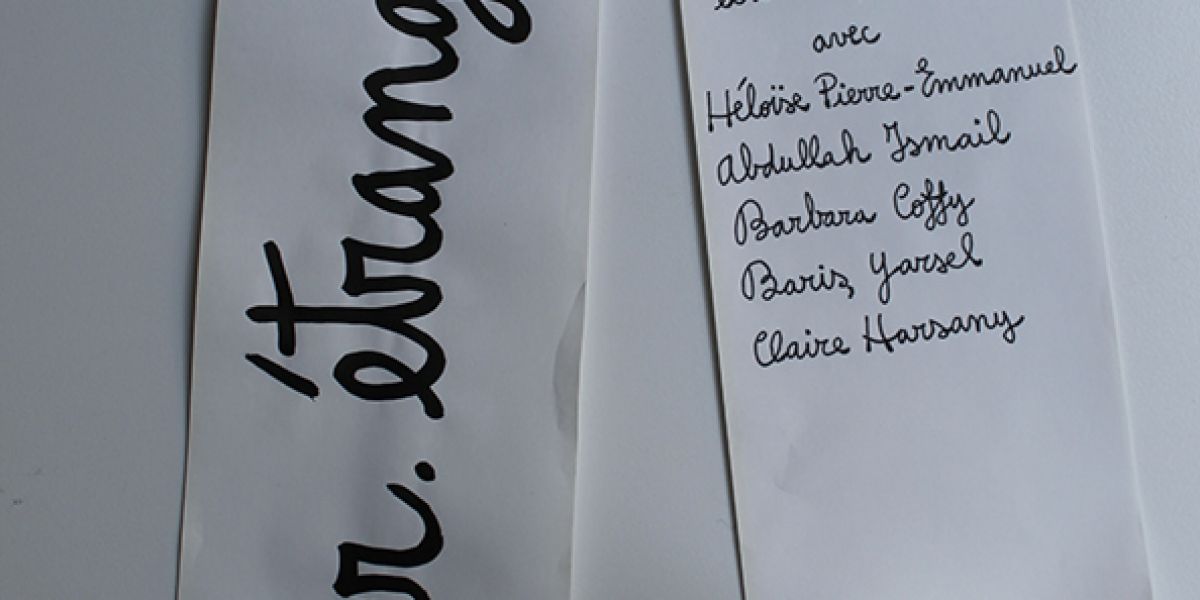 r. étrang
avec
Héloïse Pierre-Emmanuel
Abdullah Ismail
Barbara Coffy
Barış Yarsel
Claire Harsany